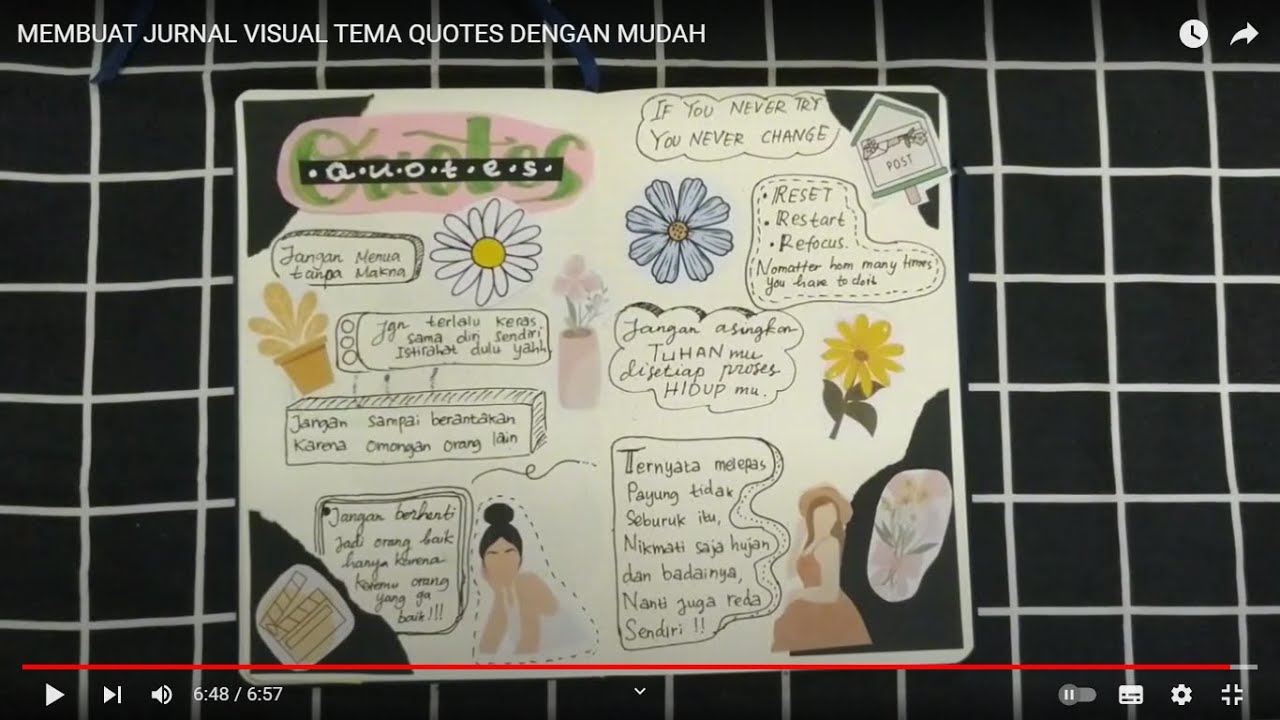 MEMBUAT JURNAL VISUAL TEMA QUOTES DENGAN MUDAH
Quotes
.q.u.o.t.e.s.
Jangan Menua
tanpa Makna
Jgn terlalu keras
sama diri sendiri
Istirahat dulu yahh
Jangan sampai berantakan
Karena omongan orang lain
Jangan berhenti
jadi orang baik
hanya karena
ketemu orang
yang ga
baik!!!
IF YOU NEVER TRY
YOU NEVER CHANGE
POST
• RESET
• Restart
• Refocus.
Nomatter hom many times
you have to doit
Jangan asingkan
TUHAN mu
disetiap proses
HIDUP mu.
Ternyata melepas
Payung tidak
Seburuk itu,
Nikmati saja hujan
dan badainya,
Nanti juga reda
Sendiri !!
6:48 / 6:57